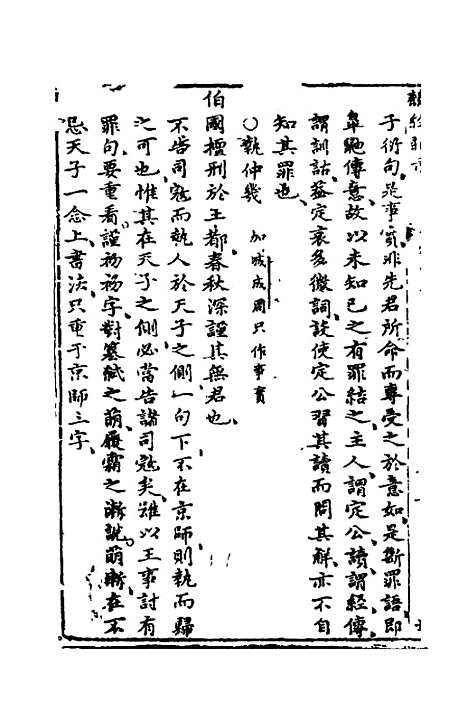 子衍句是事實非先君所命而專受之於意如是斷罪語即
傳意故以未知已之有罪結之主人謂定公讀謂經傳
謂訓詁蓋定哀多微詞設使定公習其讀而問其解亦不自
知其罪也
○執仲幾 加城成周只作事實
伯國擅刑於王都春秋深謹其無君也
不告司寇而執人於天子之側一句下不在京師則執而歸
之可也惟其在天子之側必當告諸司寇矣雖以王事討有
罪句要重看謹初初字對篡弒之萌履霜之漸說萌漸在不
忌天子一念上書法只重于京師三字